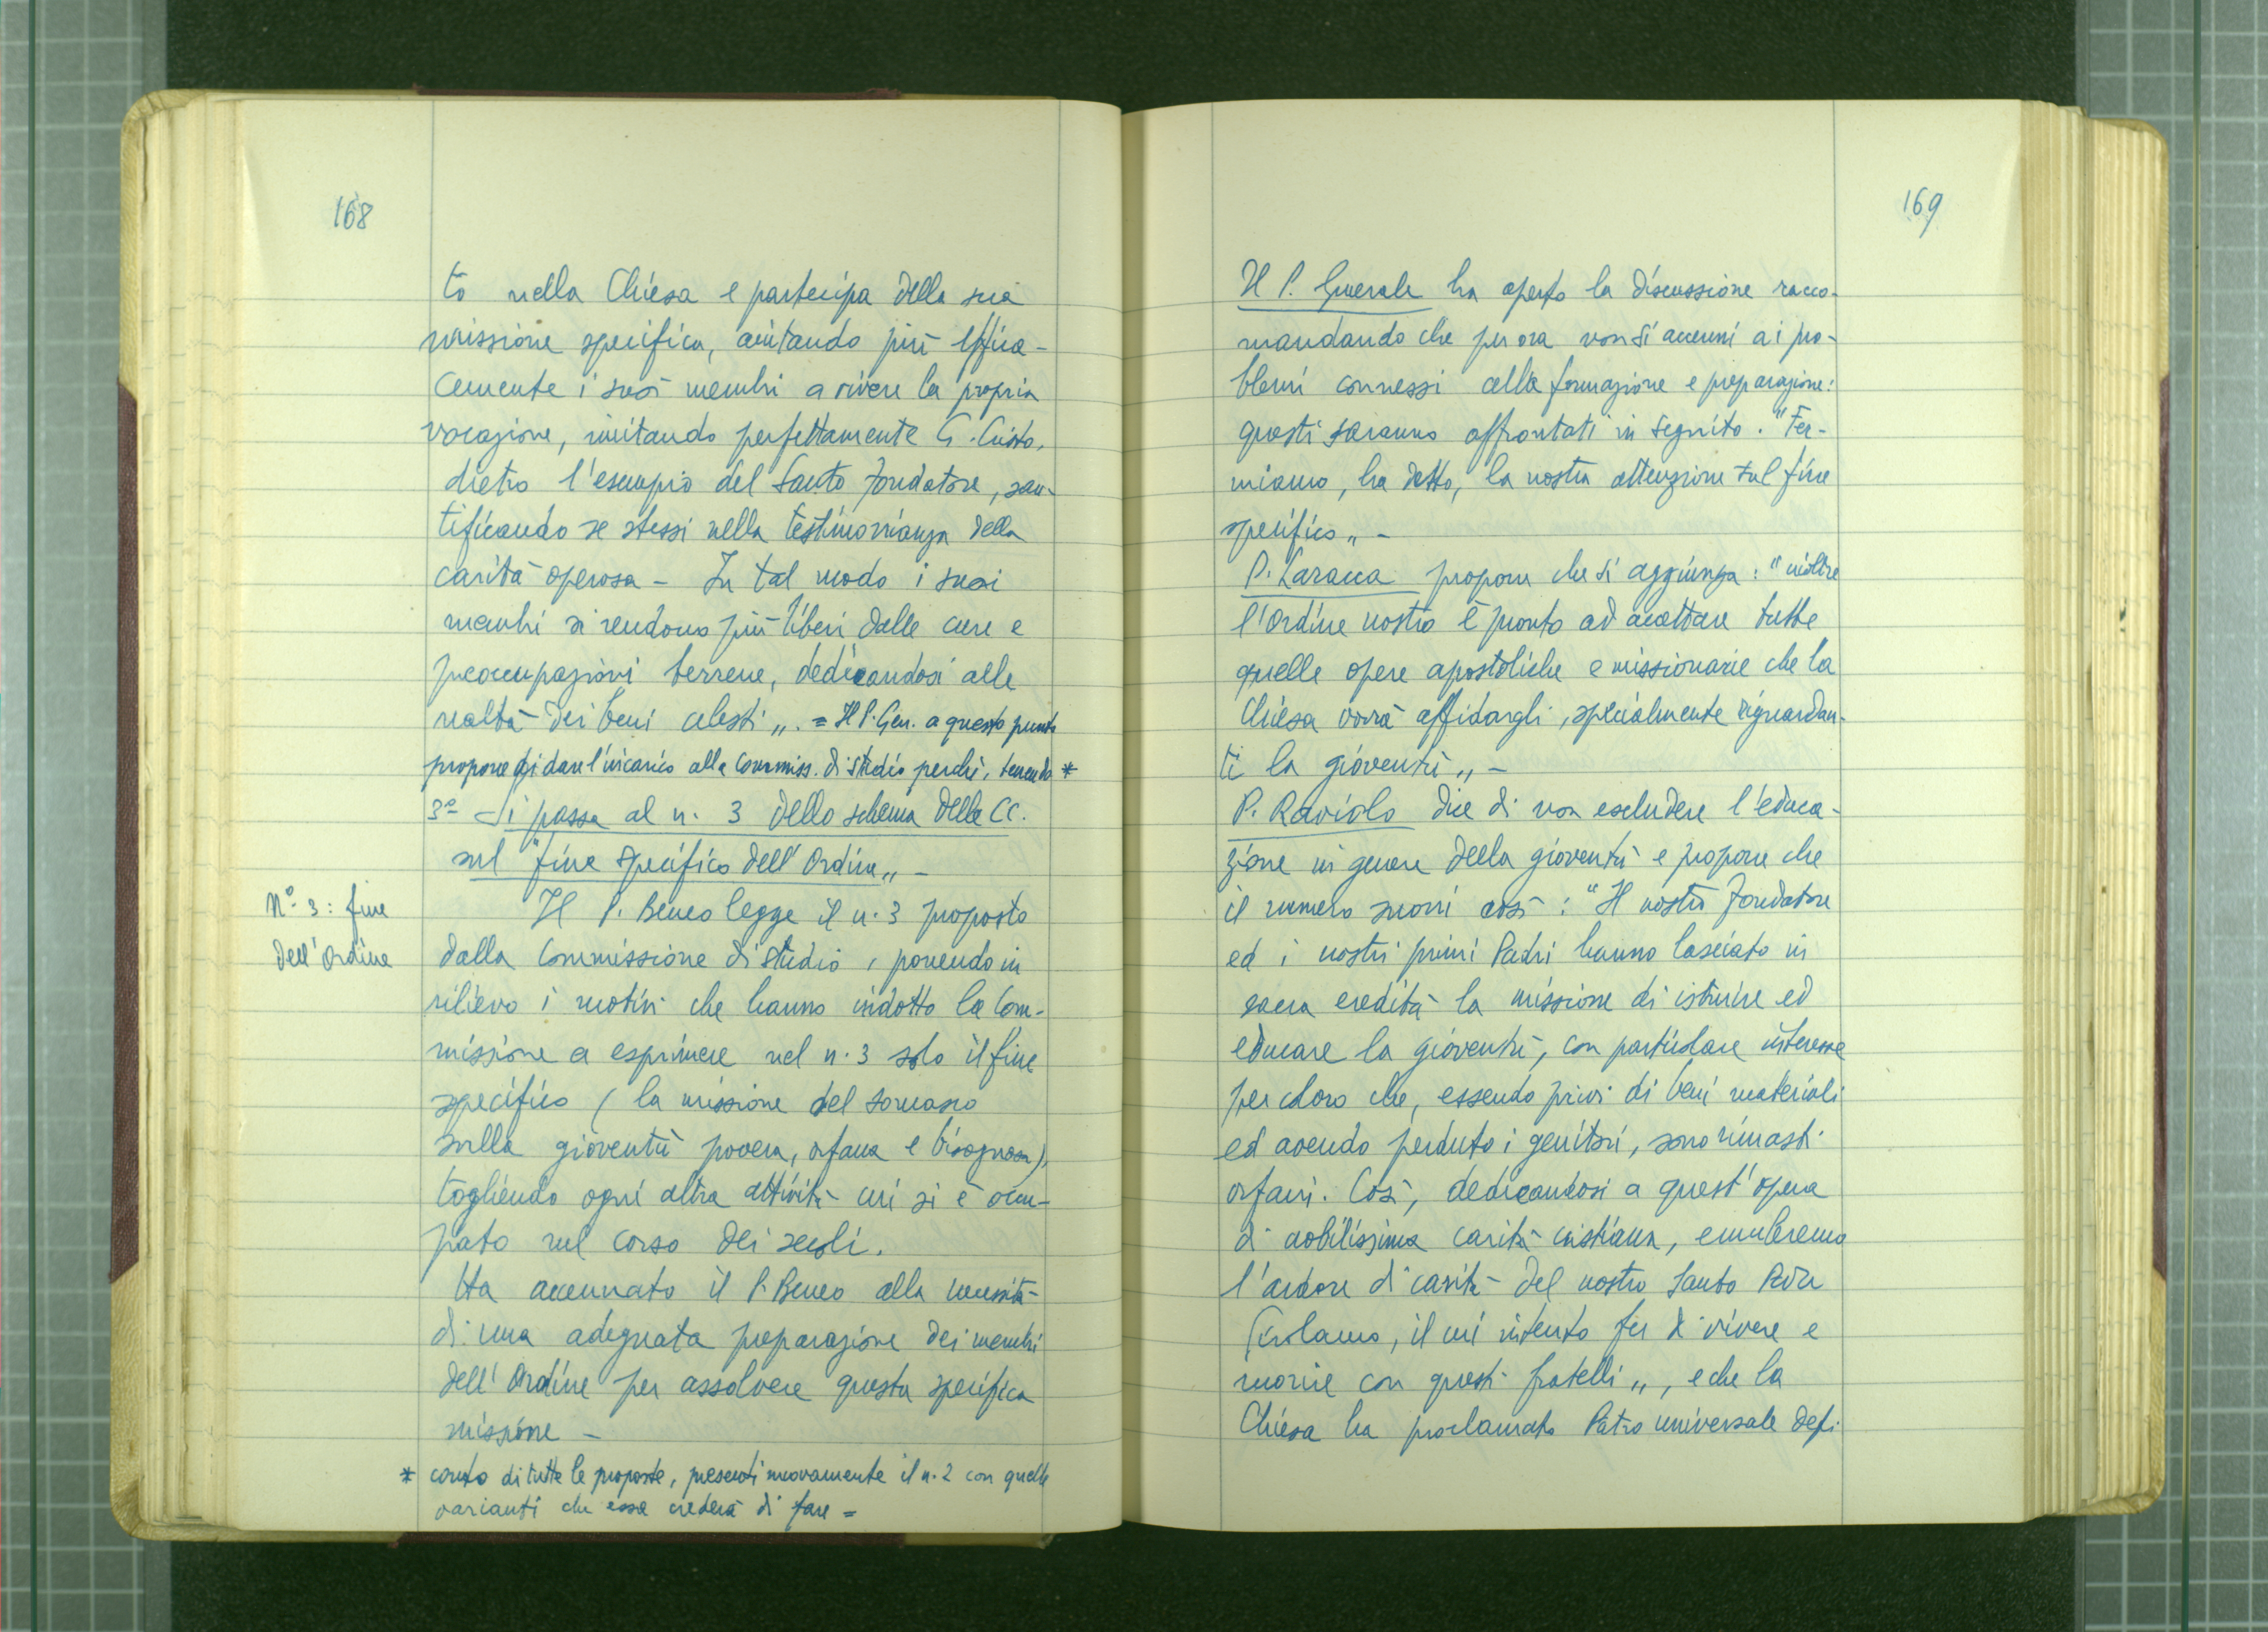 168
to nella Chiesa e partecipa della sua
missione specifica, aiutando più effica-
cemente i suoi membri a vivere la propria
vocazione, imitando perfettamente G. Cristo,
dietro l'esempio del Santo Fondatore, san-
tificando se stessi nella testimonianza della
carità operosa - In tal modo i suoi
membri si rendono più liberi dalle cure e
preoccupazioni terrene, dedicandosi alle
realtà dei beni celesti„. = Il P. Gen. a questo punto
propone di dare l'incarico alla Commiss. di studio perché, tenendo *
3º Si passa al n. 3 dello schema delle CC.
sul "fine specifico dell'Ordine„ -
Nº 3: fine
dell'Ordine
Il P. Beneo legge il n. 3 proposto
dalla Commissione di studio, ponendo in
rilievo i motivi che hanno indotto la Com-
missione a esprimere nel n. 3 solo il fine
specifico (la missione del somasco
sulla gioventù povera, orfana e bisognosa),
togliendo ogni altra attività cui si è occu-
pato nel corso dei secoli.
Ha accennato il P. Beneo alla necessità
di una adeguata preparazione dei membri
dell'Ordine per assolvere questa specifica
missione -
* conto di tutte le proposte, presenti nuovamente il n. 2 con quelle
varianti che essa crederà di fare =
169
Il P. Generale ha aperto la discussione racco-
mandando che per ora non si accenni ai pro-
blemi connessi alla formazione e preparazione:
questi saranno affrontati in seguito. "Fer-
miamo, ha detto, la nostra attenzione sul fine
specifico„ -
P. Laracca propone che si aggiunga: "inoltre
l'Ordine nostro è pronto ad accettare tutte
quelle opere apostoliche e missionarie che la
Chiesa vorrà affidargli, specialmente riguardan-
ti la gioventù„ -
P. Raviolo dice di non escludere l'educa-
zione in genere della gioventù e propone che
il numero suoni così: "Il nostro Fondatore
ed i nostri primi Padri hanno lasciato in
sacra eredità la missione di istruire ed
educare la gioventù, con particolare interesse
per coloro che, essendo privi di beni materiali
ed avendo perduto i genitori, sono rimasti
orfani. Così, dedicandosi a quest'opera
di nobilissima carità cristiana, emuleremo
l'ardore di carità del nostro Santo Padre
Girolamo, il cui intento fu di vivere e
morire con questi fratelli„, e che la
Chiesa ha proclamato Patro universale degli